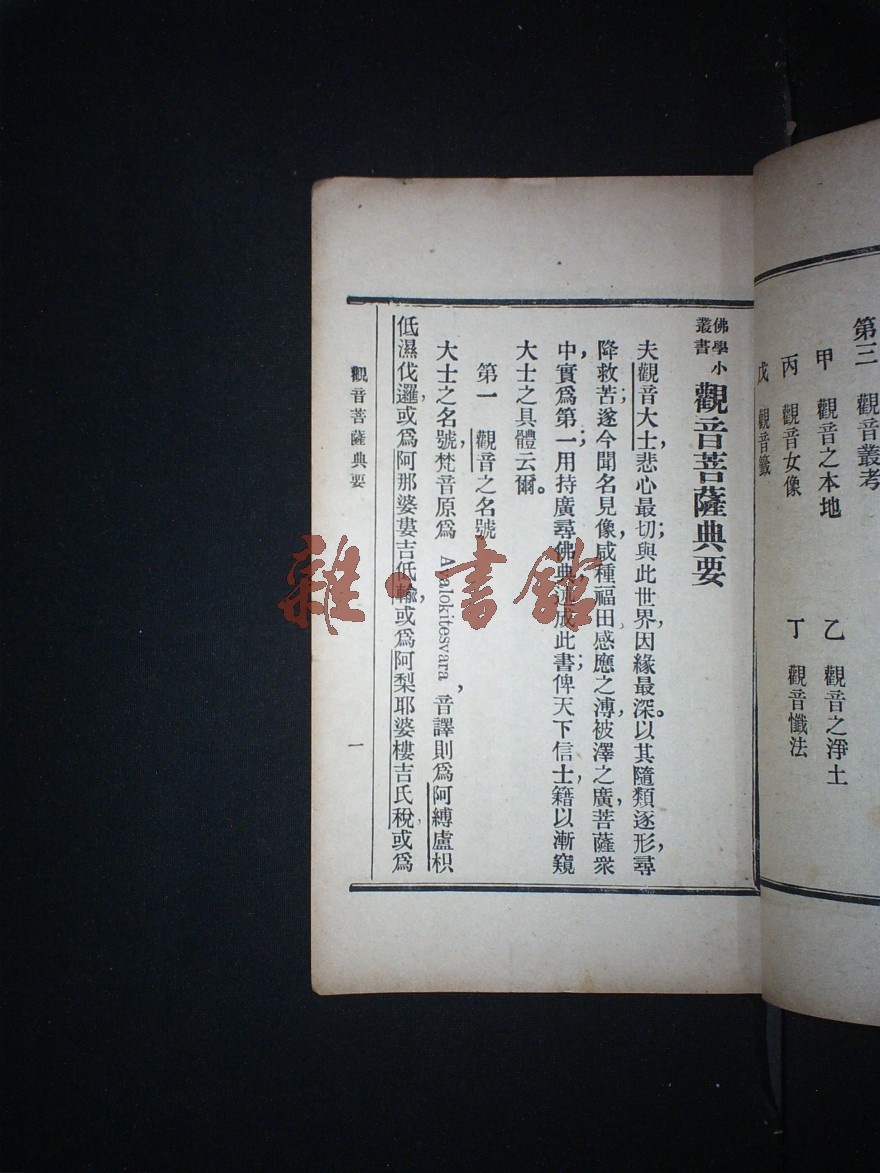 第三　觀音叢考
甲　觀音之本地　乙　觀音之淨土
丙　觀音女像　丁　觀音懺法
戊　觀音籤
佛學小叢書　觀音菩薩典要
夫觀音大士，悲心最切；與此世界，因緣最深。以其隨類逐形，尋
降救苦；遂令聞名見像，咸種福田。感應之溥，被澤之廣，菩薩衆
中，實爲第一；用持廣尋佛典，成此書；俾天下信士，籍以漸窺
大士之具體云爾。
第一　觀音之名號
大士之名號，梵音原爲 Avalokitesvara，音譯則爲阿縛盧枳
低濕伐邏，或爲阿那婆婁吉低輸，或爲阿梨耶婆樓吉氏稅，或爲
觀音菩薩典要　一
雜·書館